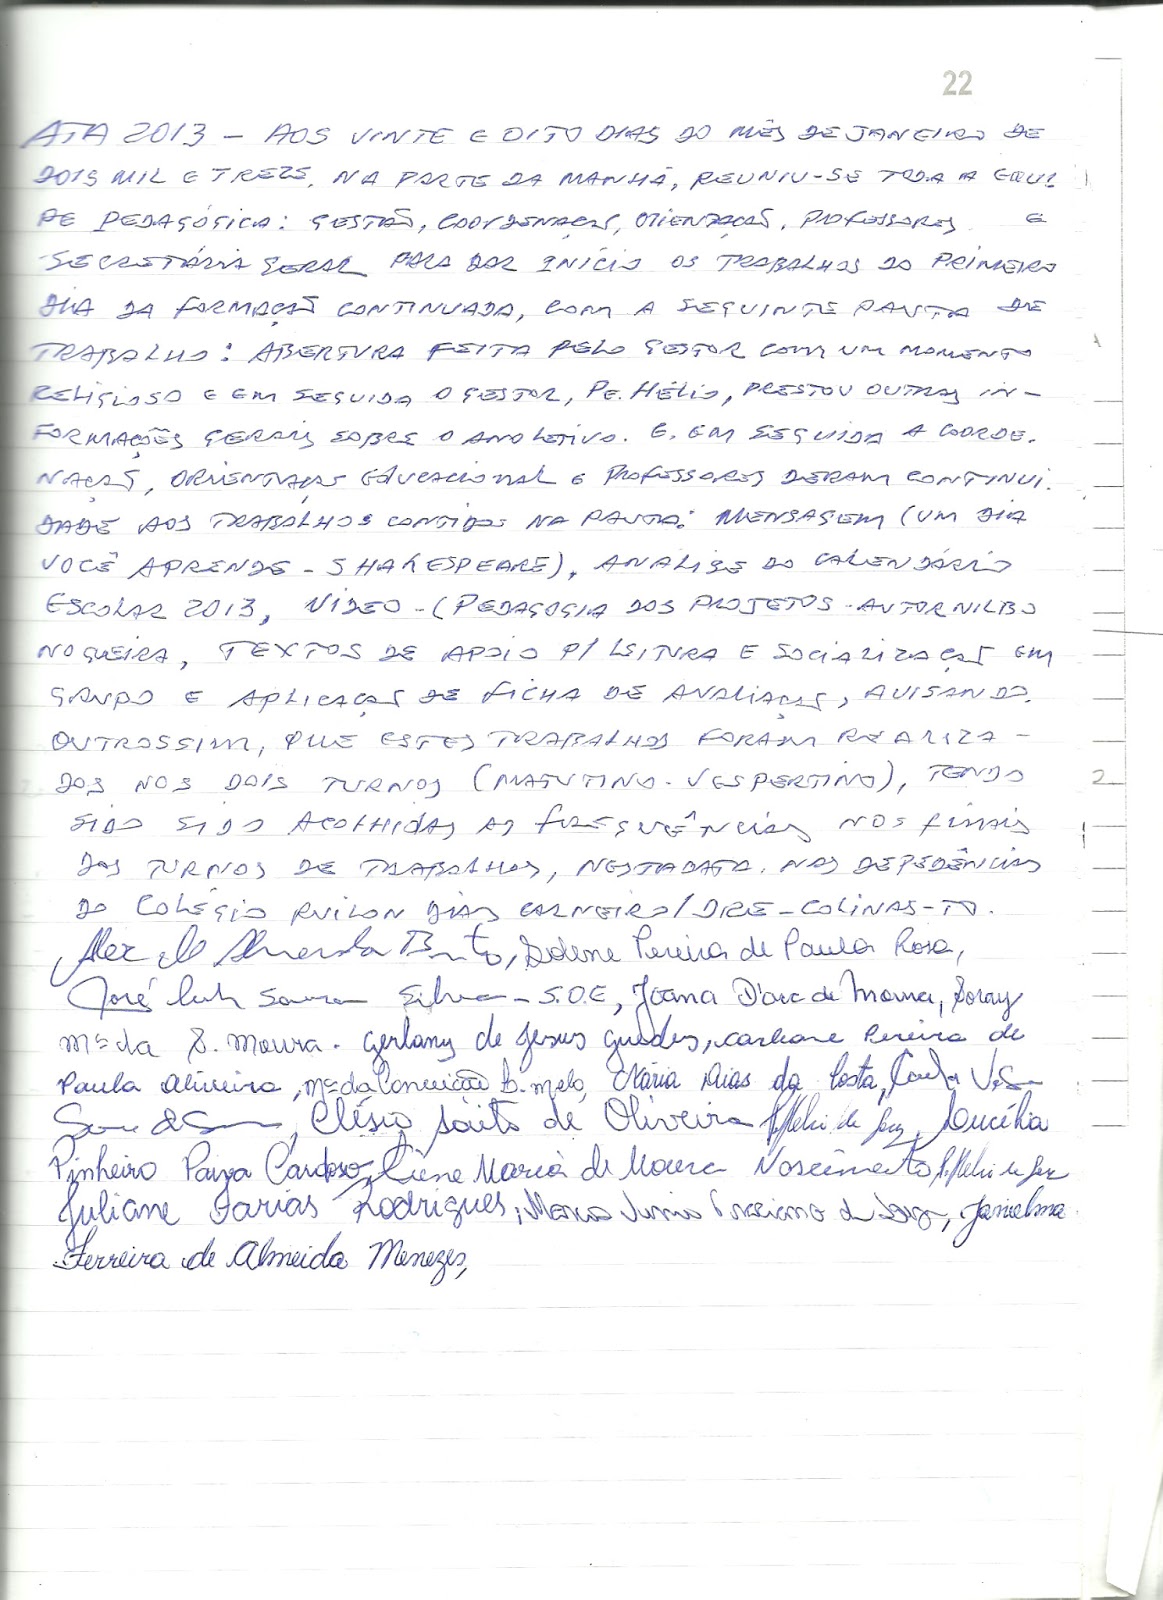 22
ATA 2013 - AOS VINTE E OITO DIAS DO MÊS DE JANEIRO DE
DOIS MIL E TREZE, NA PARTE DA MANHÃ, REUNIU-SE TODA A EQUI
PE PEDAGÓGICA: GESTÃO, COORDENAÇÃO, ORIENTAÇÃO, PROFESSORES E
SECRETÁRIA GERAL PARA DAR INÍCIO OS TRABALHOS DO PRIMEIRO
DIA DA FORMAÇÃO CONTINUADA, COM A SEGUINTE PAUTA DE
TRABALHO: ABERTURA FEITA PELO GESTOR COM UM MOMENTO
RELIGIOSO E EM SEGUIDA O GESTOR, PE. HÉLIO, PRESTOU OUTRAS IN-
FORMAÇÕES GERAIS SOBRE O ANO LETIVO. E, EM SEGUIDA A COORDE.
NAÇÃO, ORIENTAÇÃO EDUCACIONAL E PROFESSORES DERAM CONTINUI.
DADE AOS TRABALHOS CONTIDOS NA PAUTA: MENSAGEM (UM DIA
VOCÊ APRENDE - SHAKESPEARE), ANÁLISE DO CALENDÁRIO
ESCOLAR 2013, VÍDEO - (PEDAGOGIA DOS PROJETOS - AUTOR NILBO
NOGUEIRA, TEXTOS DE APOIO P/ LEITURA E SOCIALIZAÇÃO EM
GRUPO E APLICAÇÃO DE FICHA DE AVALIAÇÃO, AVISANDO,
OUTROSSIM, QUE ESTES TRABALHOS FORAM REALIZA-
DOS NOS DOIS TURNOS (MATUTINO - VESPERTINO), TENDO
SIDO SIDO ACOLHIDAS AS FREQUÊNCIAS NOS FINAIS
DOS TURNOS DE TRABALHOS, NESTA DATA. NAS DEPEDÊNCIAS
DO COLÉGIO RUILON DIAS CARNEIRO/DRE-COLINAS-TO.
Alex de Almeida Brito, Solene Pereira de Paula Rosa,
José Luiz Sousa Silva - S.O.E, Joana D'arc de Moura, Soray
Mª da S. Moura. Gerlany de Jesus Guedes, Carliane Pereira de
Paula Oliveira, Mª da Conceição B. Melo, Maria Dias da Costa,
Clésio Saito de Oliveira Pe. Hélio de Lucélia
Pinheiro Paiva Cardoso, Liene Maria de Moura Nascimento Pe. Hélio de
Juliane Farias Rodrigues, Janielma
Ferreira de Almeida Menezes,